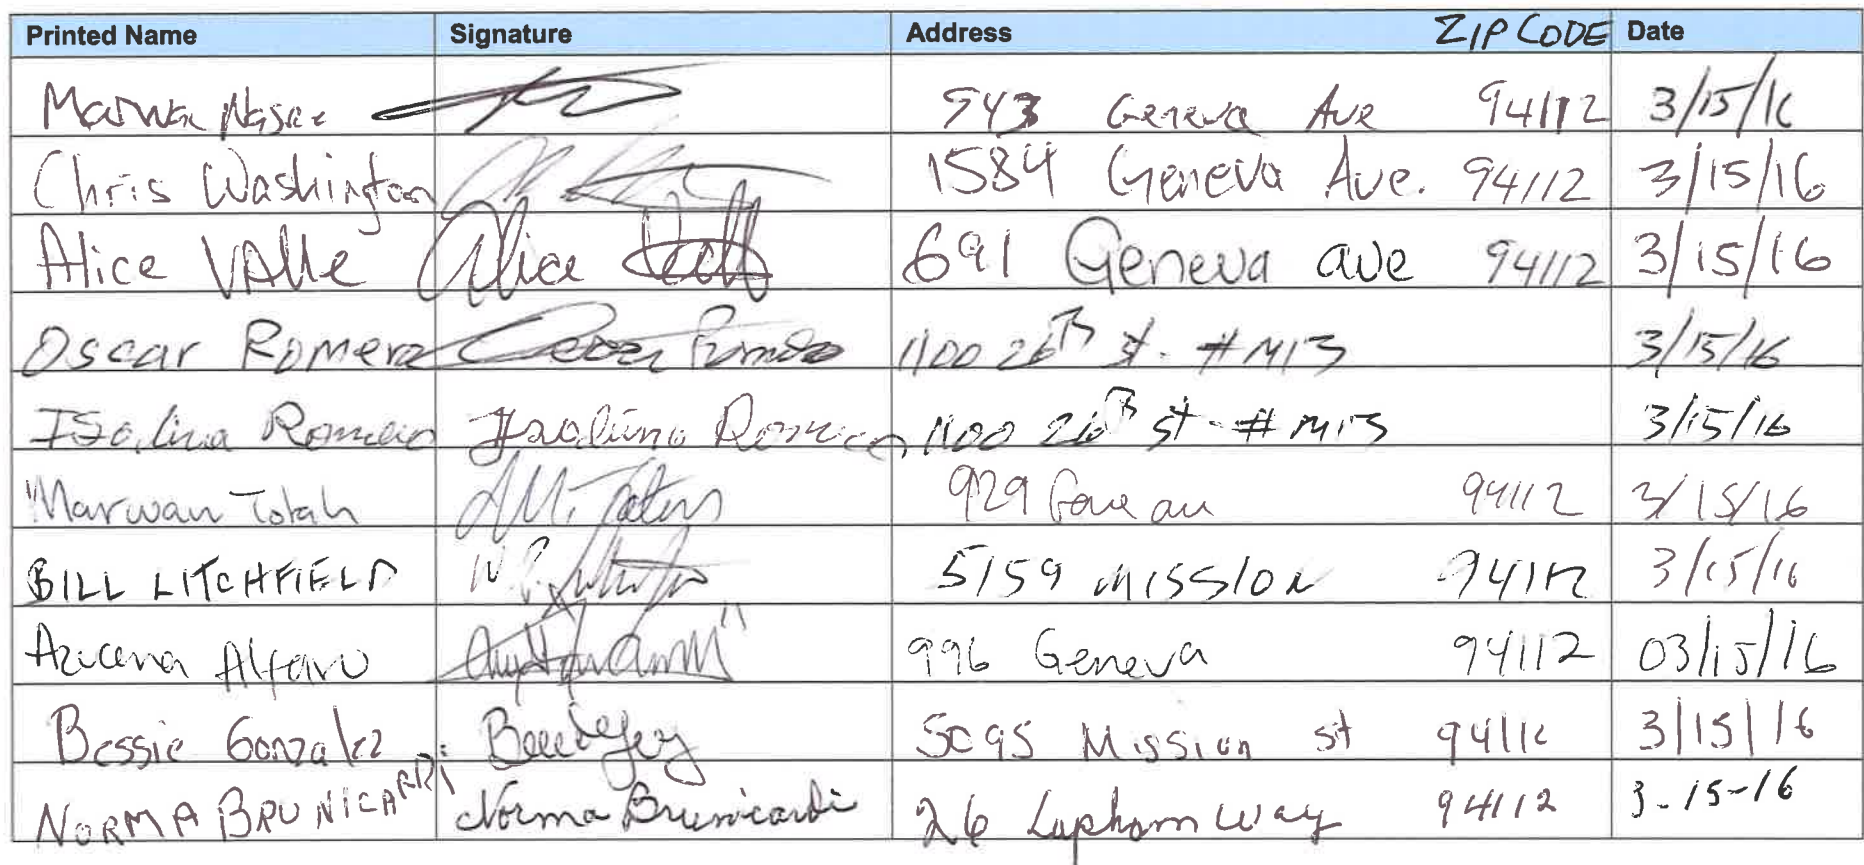 Printed Name Signature Address ZIP CODE Date
Marwa Naser 943 Geneva Ave 94112 3/15/16
Chris Washington 1584 Geneva Ave. 94112 3/15/16
Alice VAlle Alice 691 Geneva ave 94112 3/15/16
Oscar Romero Oscar Romero 1100 26th St. #M13 3/15/16
Isolina Romero Isolina Romero 1100 26th st. #M13 3/15/16
Marwan Totah 929 94112 3/15/16
BILL LITCHFIELD 5159 MISSION 94112 3/15/16
Azucena Alfaro 996 Geneva 94112 03/15/16
Bessie Gonzalez 5095 Mission st 94112 3/15/16
NORMA BRUNICARDi Norma Brunicardi 26 Lapham way 94112 3-15-16